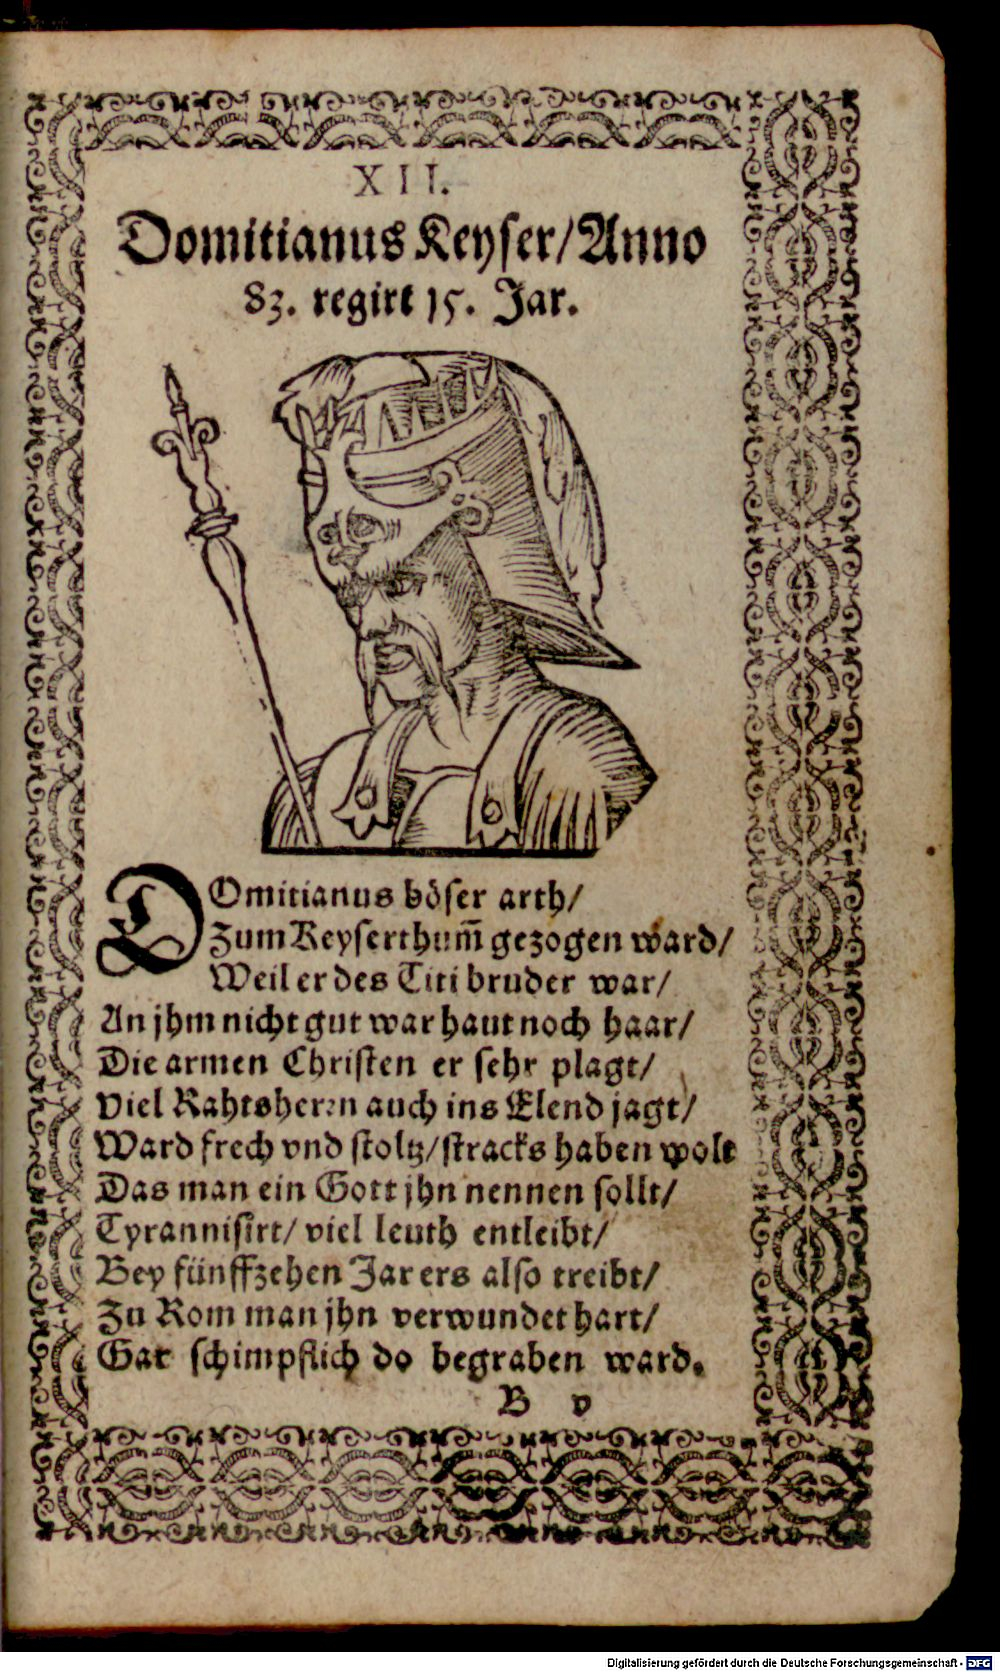 XII.
Domitianus Keyser/Anno
83. regirt 15. Jar.
DOmitianus böser arth/
Zum Keyserthum̄ gezogen ward/
Weil er des Titi bruder war/
An jhm nicht gut war haut noch haar/
Die armen Christen er sehr plagt/
Viel Rahtsherrn auch ins Elend jagt/
Ward frech vnd stoltz/stracks haben wolt
Das man ein Gott jhn nennen sollt/
Tyrannisirt/ viel leuth entleibt/
Bey fünffzehen Jar ers also treibt/
Zu Rom man jhn verwundet hart/
Gar schimpflich do begraben ward.
B v
Digitalisierung gefördert durch die Deutsche Forschungsgemeinschaft - DFG